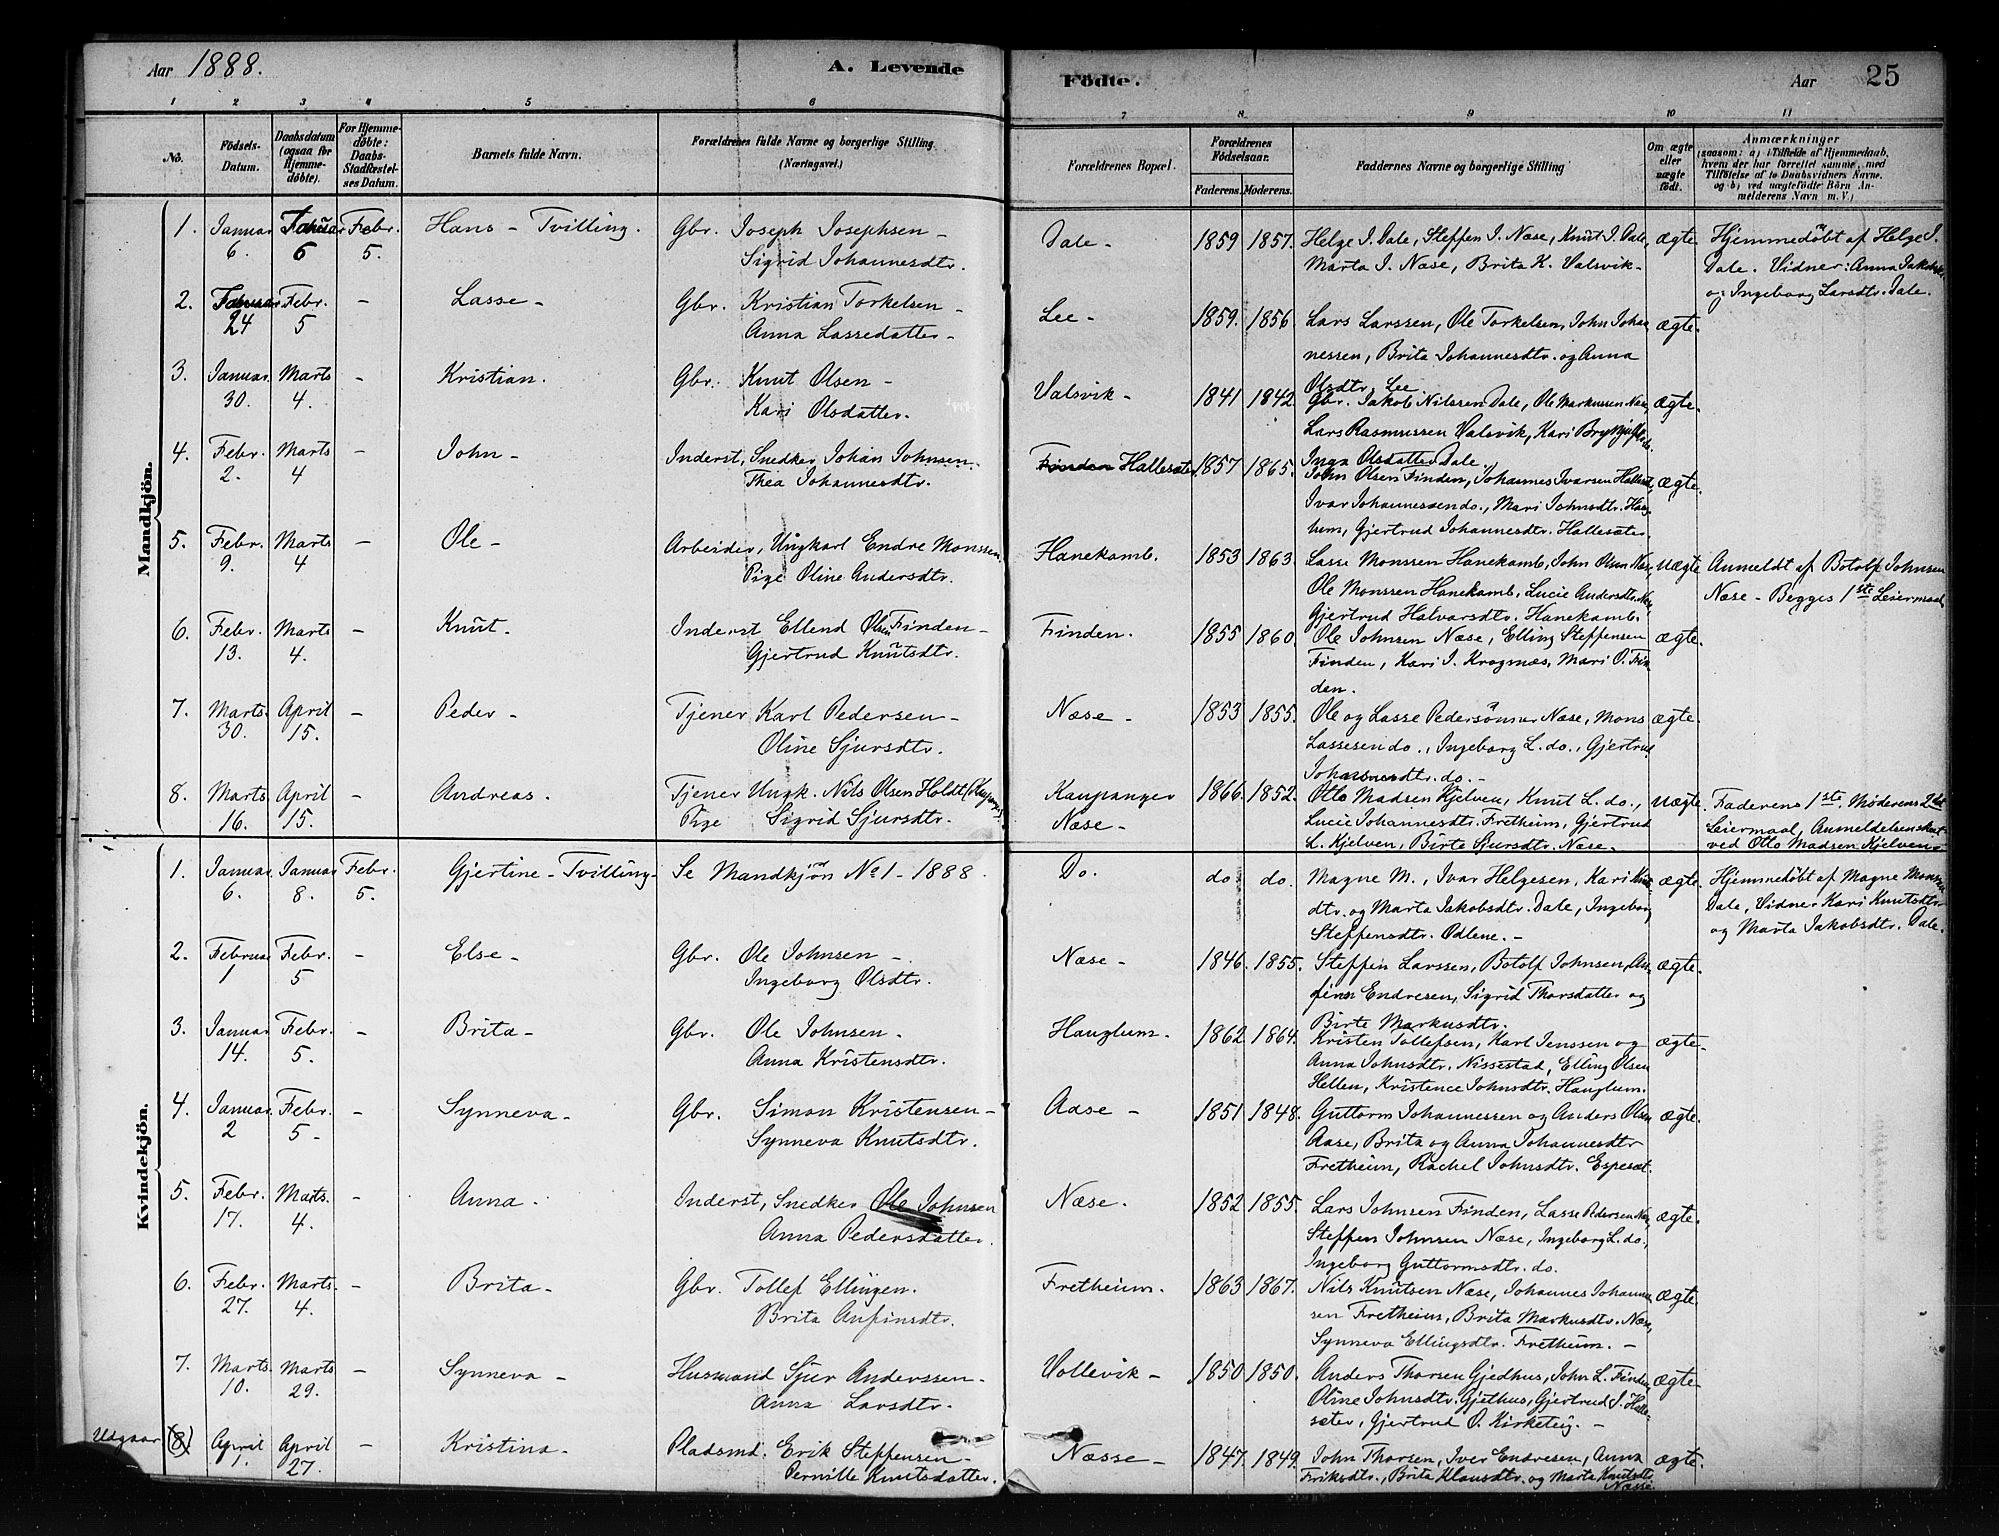 Aar 1888.
A. Levende
Födte.
Aar 25
1 2 3 4 5 6 7 8 9 10 11
No.
Födsels-Datum.
Daabsdatum (ogsaa for Hjemme-döbte).
For Hjemme-döbte: Daabs-Stadfæstel-ses Datum.
Barnets fulde Navn.
Forældrenes fulde Navne og borgerlige Stilling (Næringsvei.)
Forældrenes Bopæl.
Forældrenes Födselsaar.
Faderens. Moderens.
Faddernes Navne og borgerlige Stilling
Om ægte eller uægte födt.
Anmærkninger
(saasom: a) i Tilfælde af Hjemmedaab, hvem der har forrettet samme, med Tilföielse af to Daabsvidners Navne, og b) ved uægtefödte Börn An-melderens Navn m. V.)
Mandkjön.
1. Januar 6. Januar 6 Febr. 5. Hans - Tvilling. Gbr. Joseph Josephsen - Dale - 1859 1857. Helge J. Dale, Steffen J. Næse, Knut J. Dale, ægte. Hjemmedøbt af Helge J.
Sigrid Johannesdtr. Marta J. Næse, Brita K. Valsvik - Dale. Vidner: Anna
og Ingeborg Larsdtr. Dale.
2. Januar 24 Febr. 5 - Lasse - Gbr. Kristian Torkelsen - Lee - 1859. 1856 Lars Larssen, Ole Torkelsen, John Johan ægte.
Anna Lassedatter - nessen, Brita Johannesdtr. og Anna
Olsdtr. Lee
3. Januar 30. Marts 4. - Kristian. Gbr. Knut Olsen - Valsvik - 1841 1842. Gbr. Jakob Nilssen Dale, Ole Markussen Næse, ægte.
Kari Olsdatter. Lars Rasmussen Valsvik, Kari
Inga Olsdatter Dale.
4. Febr. 2. Marts 4 - John - Inderst, Snedker Johan Johnsen - Finden Hallesæter. 1857 1865. John Olsen Finden, Johannes Ivarsen ægte.
Thea Johannesdtr. Ivar Johannessen do., Mari Johnsdtr. Haug
lum, Gjertrud Johannesdtr. Hallesæter.
5. Febr. 9. Marts 4 - Ole - Arbeider, Ungkarl Endre Monssen Hanekamb. 1853 1863. Lasse Monssen Hanekamb, John Olsen Næse, uægte Anmeldt af Botolf Johnsen
Pige Oline Andersdtr. Ole Monssen Hanekamb, Lucie Andersdtr. Næse - Begges 1ste Leiermaal
Gjertrud Halvarsdtr. Hanekamb.
6. Febr. 13. Marts 4. - Knut. Inderst Ellend Olsen Finden - Finden. 1855 1860. Ole Johnsen Næse, Elling Steffensen ægte.
Gjertrud Knutsdtr. Finden, Kari J. Krogsnæs, Mari O. Fin
den.
7. Marts 30. April 15. - Peder - Tjener Karl Pedersen - Næse - 1853 1855. Ole og Lasse Pedersönner Næse, Mons ægte.
Oline Sjursdtr. Lassesen do., Ingeborg L. do., Gjertrud
Johannesdtr. do. -
8. Marts 16. April 15. - Andreas. Tjener Ungk. Nils Olsen Holdt Kaupanger 1866. 1852. Otto Madsen Kjelven, Knut L. do., uægte. Faderens 1ste, Moderens 2det
Pige Sigrid Sjursdtr. Næse - Lucie Johannesdtr. Fretheim, Gjertrud Leiermaal, Anmeldelsen
L. Kjelven, Birte Sjursdtr. Næse. ved Otto Madsen Kjelven -
Kvindekjön.
1. Januar 6. Januar 8. Febr. 5. Gjertine - Tvilling - Se Mandkjøn No 1 - 1888. Do. do. do. Magne M., Ivar Helgesen, Kari Knuts ægte. Hjemmedøbt af Magne Monssen
dtr. og Marta Jakobsdtr. Dale, Ingeborg Dale, Vidner Kari Knutsdtr.
Steffensdtr. Odlene. - og Marta Jakobsdtr. Dale.
2. Februar 1 Febr. 5 - Else - Gbr. Ole Johnsen - Næse - 1846. 1855. Steffen Larssen, Botolf Johnsen, An ægte.
Ingeborg Olsdtr. finn Endresen, Sigrid Thorsdatter og
Birte Markusdtr.
3. Januar 14. Febr. 5. - Brita - Gbr. Ole Johnsen - Hauglum - 1862 1864. Kristen Tollefsen, Karl Jenssen og ægte -
Anna Kristensdtr. Anna Johnsdtr. Nissestad, Elling Olsen
Hellen, Kristence Johnsdtr. Hauglum.
4. Januar 2 Febr. 5 - - Synneva - Gbr. Simon Kristensen - Aase - 1851 1848. Guttorm Johannessen og Anders Olsen ægte.
Synneva Knutsdtr. Aase, Brita og Anna Johannesdtr
Fretheim, Rachel Johnsdtr. Espesæt.
5. Febr. 17. Marts. 4. - Anna - Inderst, Snedker Ole Johnsen Næse. 1852 1855. Lars Johnsen Finden, Lasse Pedersen Næse, ægte.
Anna Pedersdatter. Steffen Johnsen Næse, Ingeborg L. do.,
Ingeborg Guttormsdtr. do.
6. Febr. 27. Marts. 4. - Brita - Gbr. Tollef Ellingen. Fretheim. 1863 1867. Nils Knutsen Næse, Johannes Johannes ægte.
Brita Anfinsdtr. sen Fretheim, Brita Markusdtr. Næse,
Synneva Ellingsdtr. Fretheim. -
7. Marts. 10. Marts 29. - Synneva - Husmand Sjur Anderssen - Vollevik - 1850 1850. Anders Thorsen Gjedhus, John L. Finden, ægte -
Anna Larsdtr. Oline Johnsdtr. Gjethus, Gjertrud J. Halle-
sæter, Gjertrud O. Kirketeig. -
Udgaar (8) April 1. April 27. - Kristina - Pladsmd. Erik Steffensen - Næsse - 1847. 1849. John Thorsen, Iver Endresen, Anna ægte.
Pernille Knutsdatter. Eriksdtr., Brita Klausdtr. og Marta Knutsdtr.
Næsse.